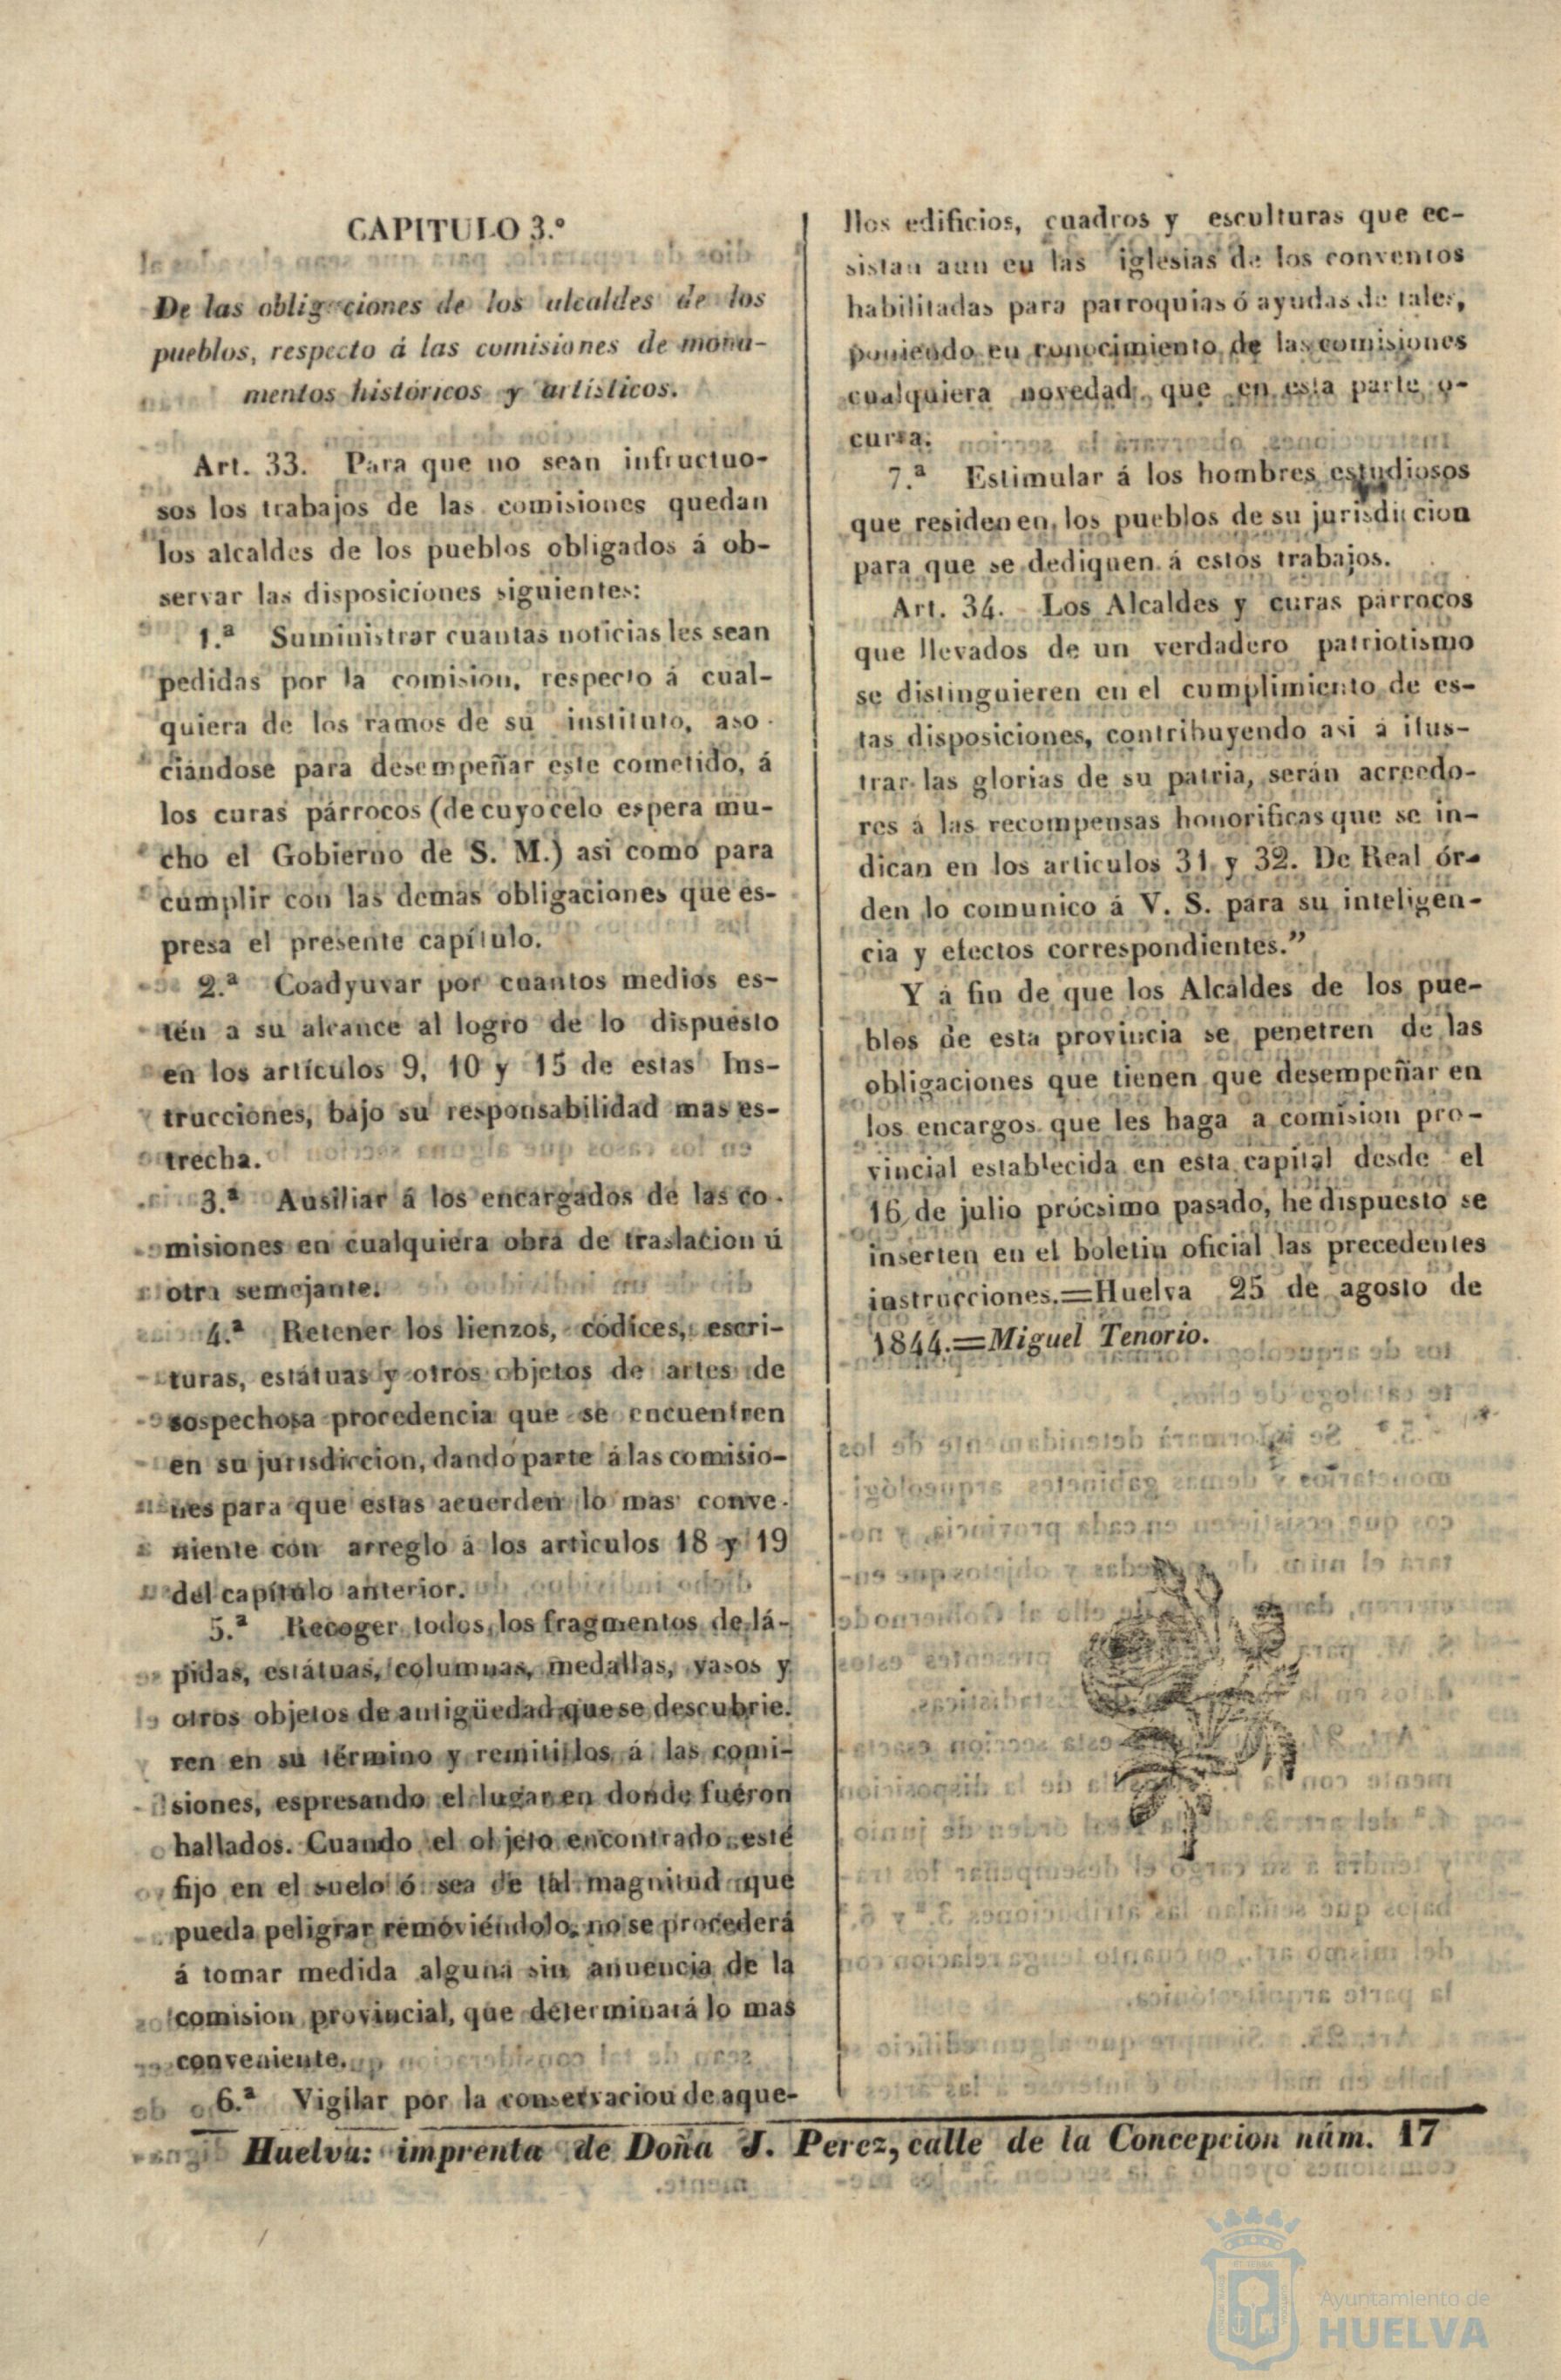 CAPITULO 3.º
De las obligaciones de los alcaldes de los
pueblos, respecto á las comisiones de monu-
mentos históricos y artísticos.
Art. 33. Para que no sean infructuo-
sos los trabajos de las comisiones quedan
los alcaldes de los pueblos obligados á ob-
servar las disposiciones siguientes:
1.ª Suministrar cuantas noticias les sean
pedidas por la comision, respecto á cual-
quiera de los ramos de su instituto, aso-
ciándose para desempeñar este cometido, á
los curas párrocos (de cuyo celo espera mu-
cho el Gobierno de S. M.) asi como para
cumplir con las demas obligaciones que es-
presa el presente capítulo.
2.ª Coadyuvar por cuantos medios es-
tén a su alcance al logro de lo dispuesto
en los artículos 9, 10 y 15 de estas Ins-
trucciones, bajo su responsabilidad mas es-
trecha.
3.ª Ausiliar á los encargados de las co-
misiones en cualquiera obra de traslacion ú
otra semejante.
4.ª Retener los lienzos, códices, escri-
turas, estátuas y otros objetos de artes de
sospechosa procedencia que se encuentren
en su jurisdiccion, dando parte á las comisio-
nes para que estas acuerden lo mas conve-
niente con arreglo á los articulos 18 y 19
del capítulo anterior.
5.ª Recoger todos los fragmentos de lá-
pidas, estátuas, columnas, medallas, vasos y
otros objetos de antigüedad que se descubrie-
ren en su término y remitirlos á las comi-
siones, espresando el lugar en donde fueron
hallados. Cuando el objeto encontrado esté
fijo en el suelo ó sea de tal magnitud que
pueda peligrar removiéndolo, no se procederá
á tomar medida alguna sin anuencia de la
comision provincial, que determinará lo mas
conveniente.
6.ª Vigilar por la conservacion de aque-
llos edificios, cuadros y esculturas que ec-
sistan aun en las iglesias de los conventos
habilitadas para parroquias ó ayudas de tales,
poniendo en conocimiento de las comisiones
cualquiera novedad que en esta parte o-
curra.
7.ª Estimular á los hombres estudiosos
que residen en los pueblos de su jurisdiccion
para que se dediquen á estos trabajos.
Art. 34. Los Alcaldes y curas párrocos
que llevados de un verdadero patriotismo
se distinguieren en el cumplimiento de es-
tas disposiciones, contribuyendo asi á ilus-
trar las glorias de su patria, serán acreedo-
res á las recompensas honorificas que se in-
dican en los articulos 31 y 32. De Real ór-
den lo comunico á V. S. para su inteligen-
cia y efectos correspondientes.”
Y á fin de que los Alcaldes de los pue-
blos de esta provincia se penetren de las
obligaciones que tienen que desempeñar en
los encargos que les haga a comision pro-
vincial establecida en esta capital desde el
16 de julio prócsimo pasado, he dispuesto se
inserten en el boletin oficial las precedentes
instrucciones.=Huelva 25 de agosto de
1844.=Miguel Tenorio.
Huelva: imprenta de Doña J. Perez, calle de la Concepcion núm. 17
Ayuntamiento de
HUELVA